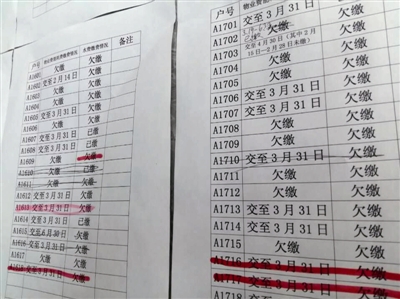 户号 物业费缴费情况 水费缴费情况 备注
A1601 欠缴 欠缴
A1602 交至2月14日 欠缴
A1603 欠缴 欠缴
A1604 欠缴 欠缴
A1605 欠缴 欠缴
A1606 欠缴 欠缴
A1607 交至3月31日 已缴
A1608 交至3月31日 已缴
A1609 欠缴 欠缴
A1610 欠缴 已缴
A1611 欠缴 欠缴
A1612 交至3月31日 欠缴
A1613 交至3月31日 欠缴
A1614 交至3月31日 已缴
A1615 交至6月30日 已缴
A1616 交至3月31日 欠缴
A1617 欠缴 欠缴
A1618 交至3月31日 欠缴
户号
A1701 交至3月31日 欠缴
A1702 欠缴
A1703 交至4月30日(其中2月15日-2月28日未缴) 欠缴
A1704 欠缴 欠缴
A1705 欠缴 欠缴
A1706 交至3月31日 欠缴
A1707 交至3月31日 欠缴
A1708 欠缴 欠缴
A1709 欠缴 欠缴
A1710 交至3月31日 欠缴
A1711 欠缴 欠缴
A1712 欠缴 欠缴
A1713 交至3月31日 欠缴
A1714 交至3月31日 欠缴
A1715 欠缴 欠缴
A1716 交至3月31日 欠缴
A1717 交至3月31日 欠缴
A1718 交至3月31日 欠缴